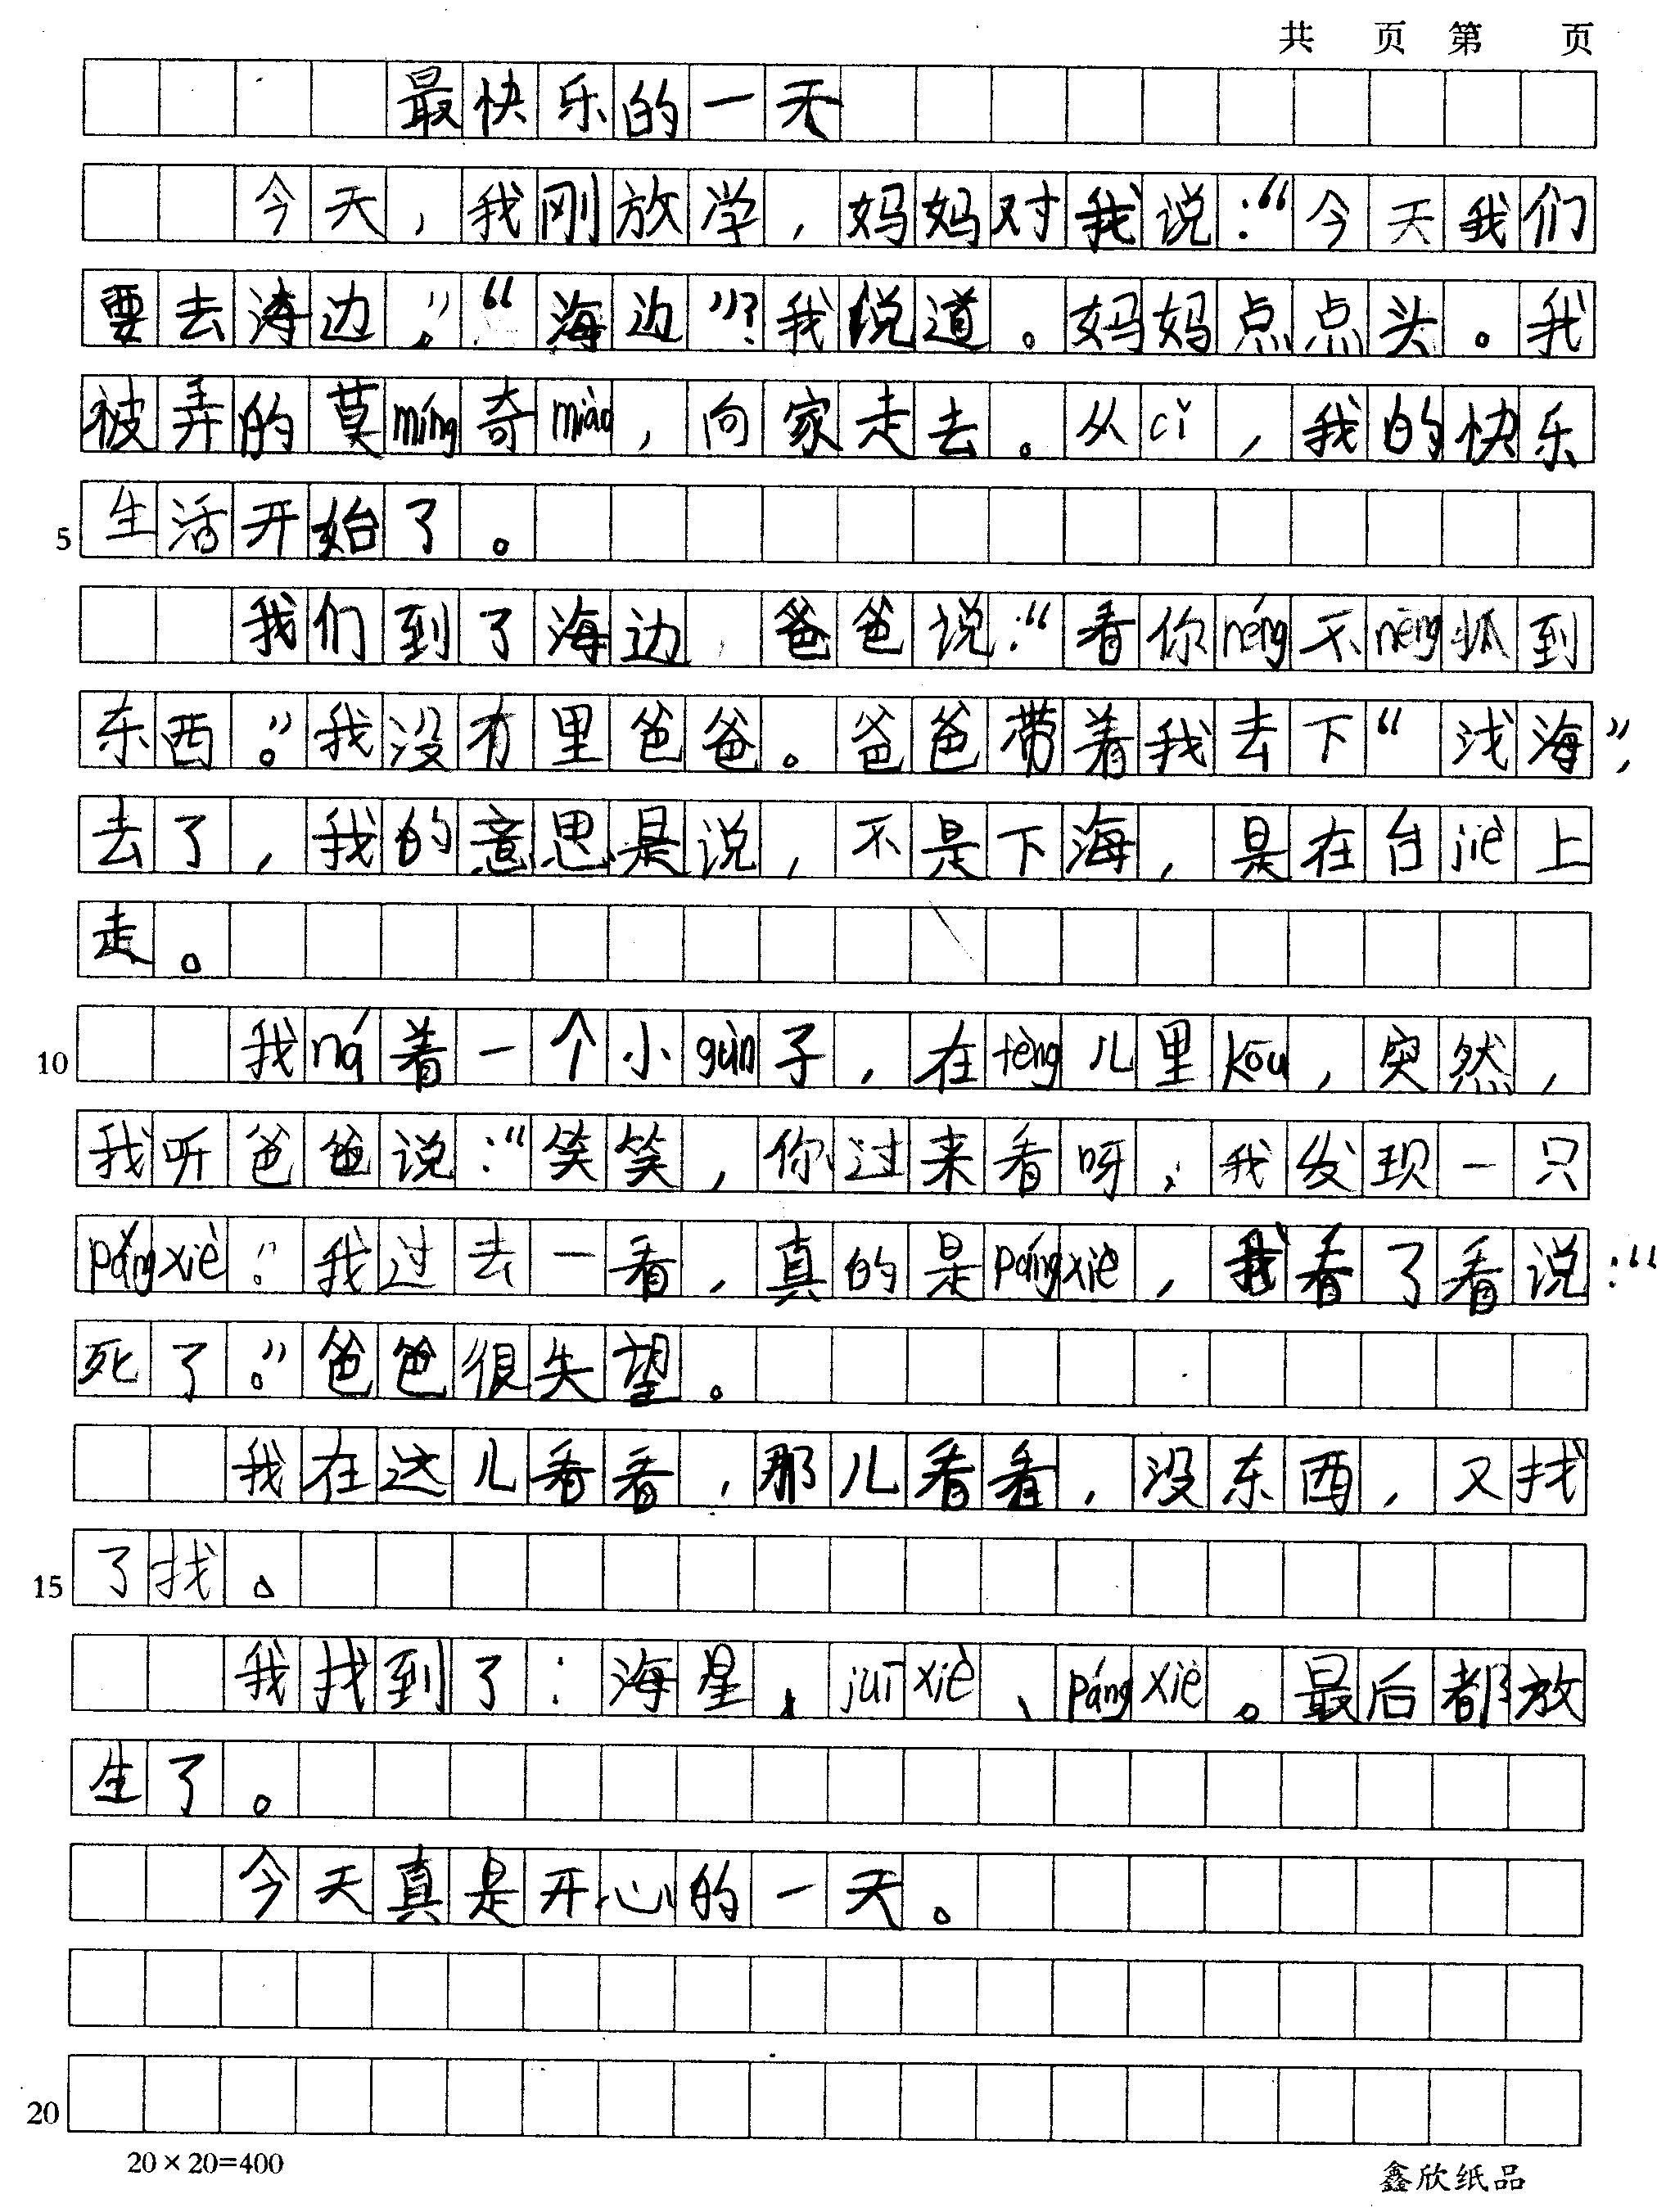 共 页 第 页
最快乐的一天
今天，我刚放学，妈妈对我说：“今天我们
要去海边。”“海边”？我说道。妈妈点点头。我
被弄的莫míng奇miào，向家走去。从cǐ，我的快乐
5 生活开始了。
我们到了海边，爸爸说：“看你néng不néng抓到
东西。”我没有里爸爸。爸爸带着我去下“浅海”，
去了，我的意思是说，不是下海，是在台jiē上
走。
10 我ná着一个小gùn子，在fèng儿里kōu，突然，
我听爸爸说：“笑笑，你过来看呀，我发现一只
pángxiè。”我过去一看，真的是pángxiè，我看了看说：“
死了。”爸爸很失望。
我在这儿看看，那儿看看，没东西，又找
15 了找。
我找到了：海星、juī xiè、páng xiè。最后都放
生了。
今天真是开心的一天。
20
20×20=400 鑫欣纸品